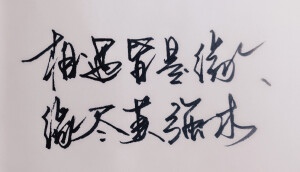 相遇皆是缘、
缘尽莫强求